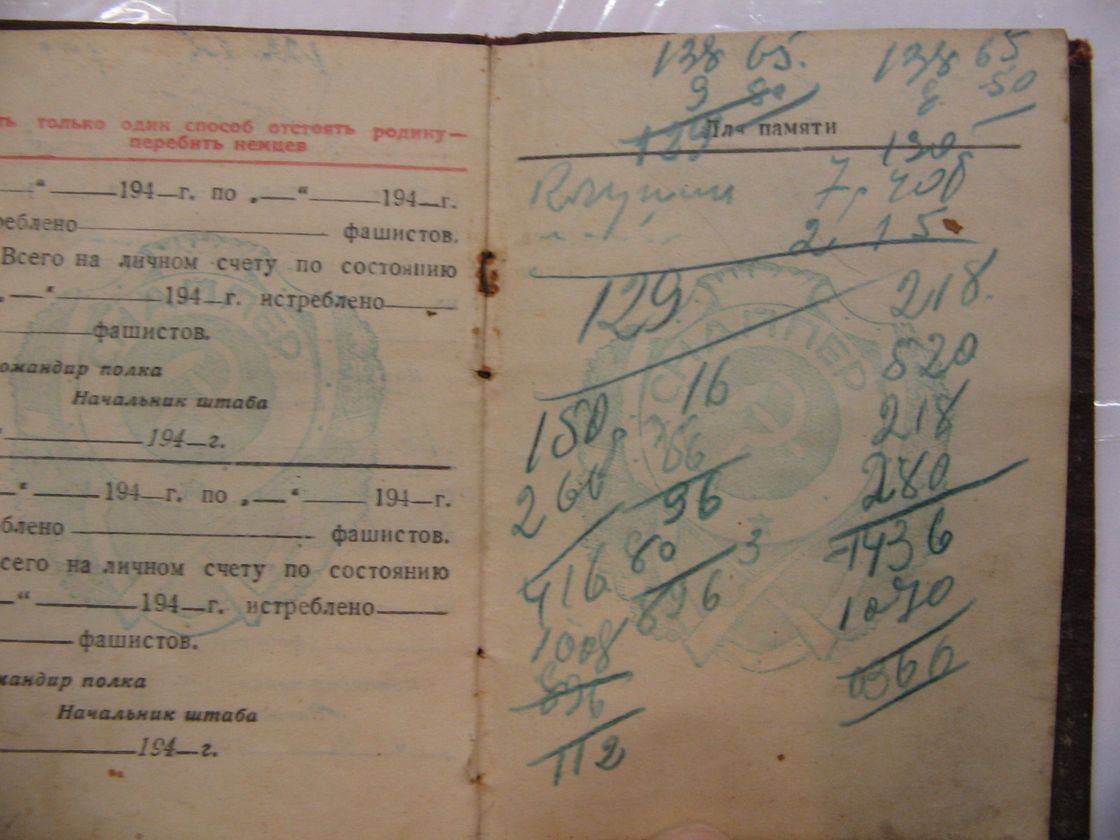 ть только один способ отстоять родину—
перебить немцев
—“———194—г. по „—“———194—г.
реблено———————— фашистов.
Всего на личном счету по состоянию
„—“————194—г. истреблено———
————фашистов.
омандир полка
Начальник штаба
“——————194—г.
—“———194—г. по „—“———194—г.
блено———————— фашистов.
сего на личном счету по состоянию
—“————194—г. истреблено———
———фашистов.
мандир полка
Начальник штаба
——————194—г.
138 65.
9 80
129
138 65
8 50
130
Для памяти
7, 408
2, 15
129
СНАЙПЕР
218.
820
218
280
1436
1070
0366
16
86
96
80
3
896
150
266
416
1008
896
112